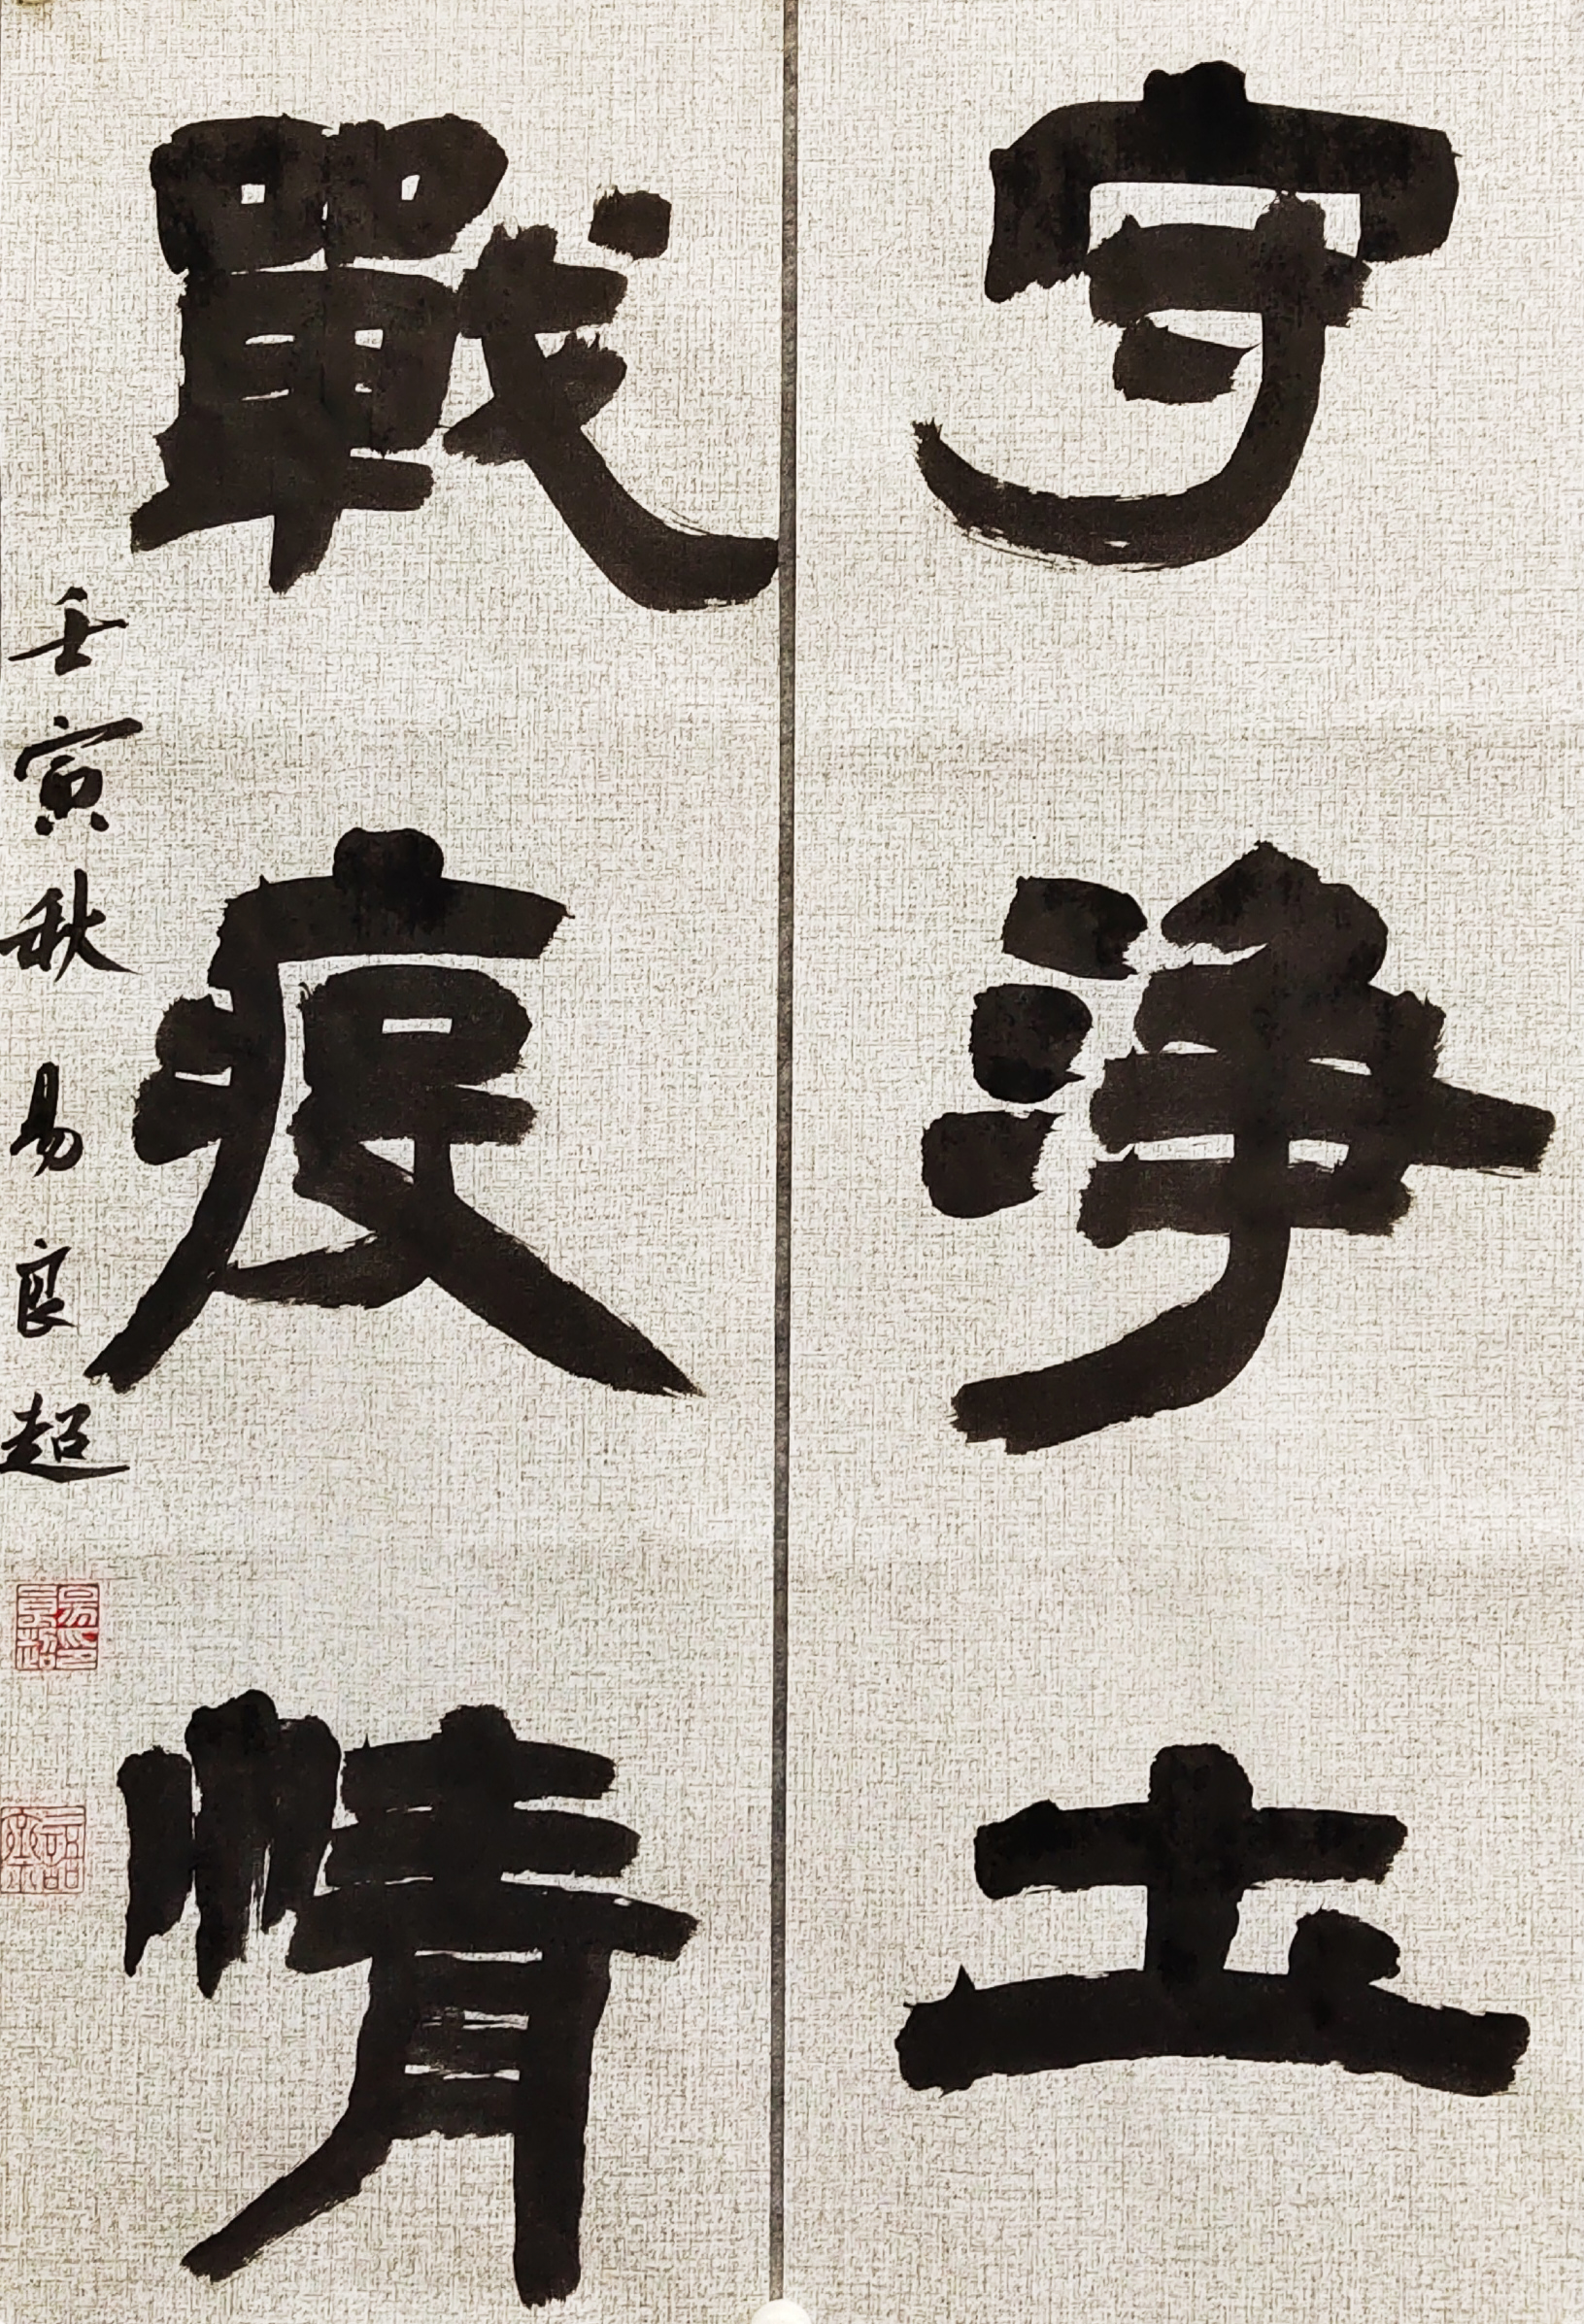 守淨土
戰疫情
壬寅秋易良超